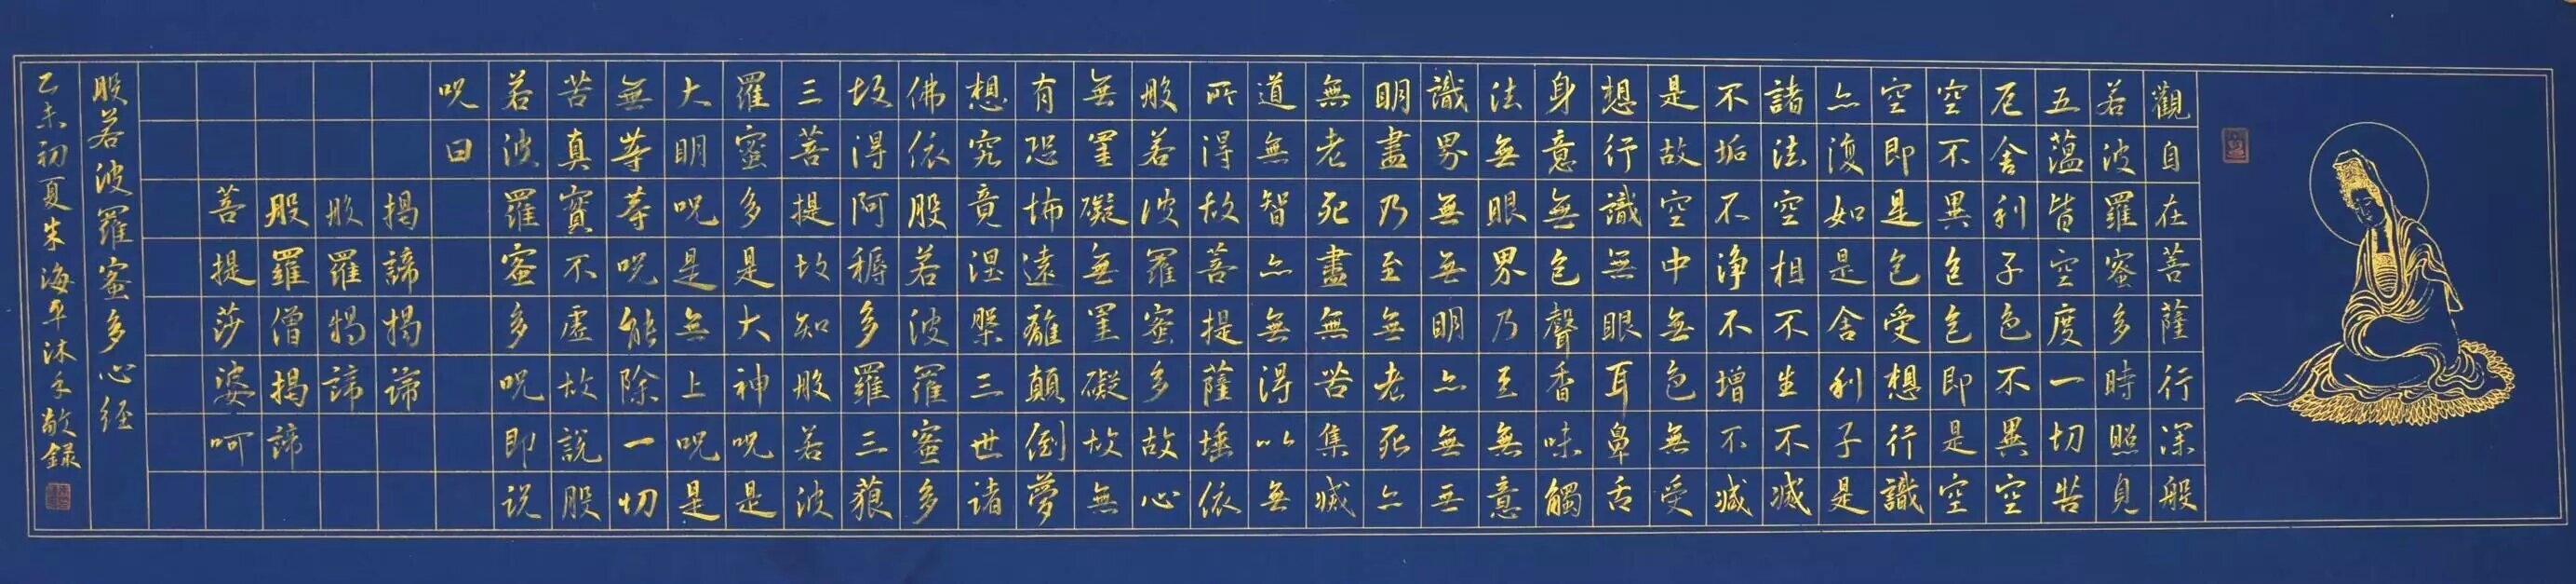 觀自在菩薩行深般
若波羅蜜多時照見
五蕴皆空度一切苦
厄舍利子色不異空
空不異色色即是空
空即是色受想行識
亦復如是舍利子是
諸法空相不生不滅
不垢不淨不增不減
是故空中無色無受
想行識無眼耳鼻舌
身意無色聲香味觸
法無眼界乃至無意
識界無無明亦無無
明盡乃至無老死亦
無老死盡無苦集滅
道無智亦無得以無
所得故菩提薩埵依
般若波羅蜜多故心
無罣礙無罣礙故無
有恐怖遠離顛倒夢
想究竟涅槃三世諸
佛依般若波羅蜜多
故得阿耨多羅三藐
三菩提故知般若波
羅蜜多是大神呪是
大明呪是無上呪是
無等等呪能除一切
苦真實不虛故說般
若波羅蜜多呪即说
呪曰
揭諦揭諦
般羅揭諦
般羅僧揭諦
菩提莎婆呵
般若波羅蜜多心经
乙未初夏朱海平沐手敬録